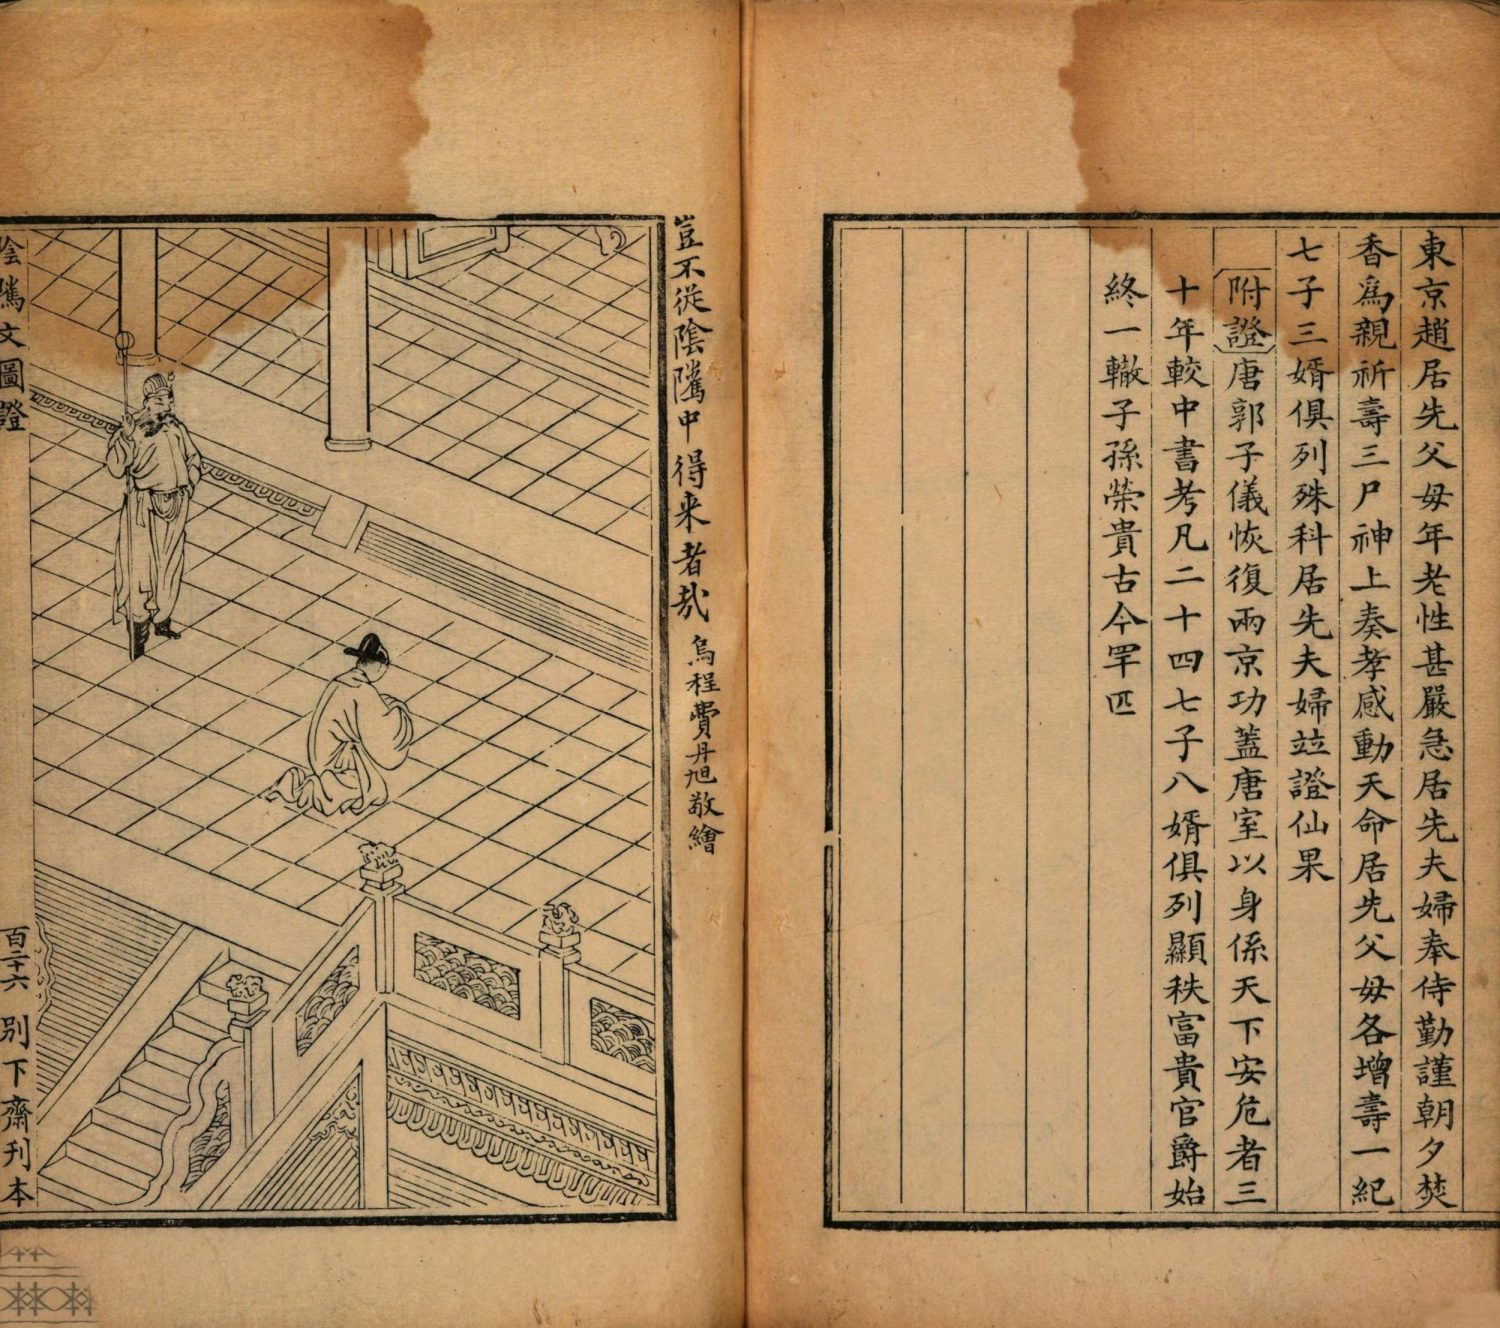 東京趙居先父母年老性甚嚴急居先夫婦奉侍勤謹朝夕焚
香爲親祈壽三尸神上奏孝感動天命居先父母各增壽一紀
七子三婿俱列殊科居先夫婦竝證仙果
附證唐郭子儀恢復兩京功蓋唐室以身係天下安危者三
十年較中書考凡二十四七子八婿俱列顯秩富貴官爵始
終一轍子孫榮貴古今罕匹
豈不從陰隲中得来者哉 烏程費丹旭敬繪
陰隲文圖證 百二十六 別下齋刊本